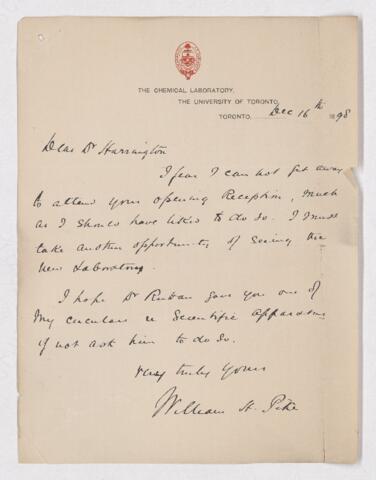 THE CHEMICAL LABORATORY,
THE UNIVERSITY OF TORONTO
TORONTO, Dec 16th 1898
Dear Dr Harrington
I fear I can not get away
to attend your opening Reception, much
as I should have liked to do so. I must
take another opportunity of seeing the
new Laboratory.
I hope Dr Ruttan gave you one of
my circulars re Scientific Apparatus
if not ask him to do so.
Very truly yours
William H. Pike